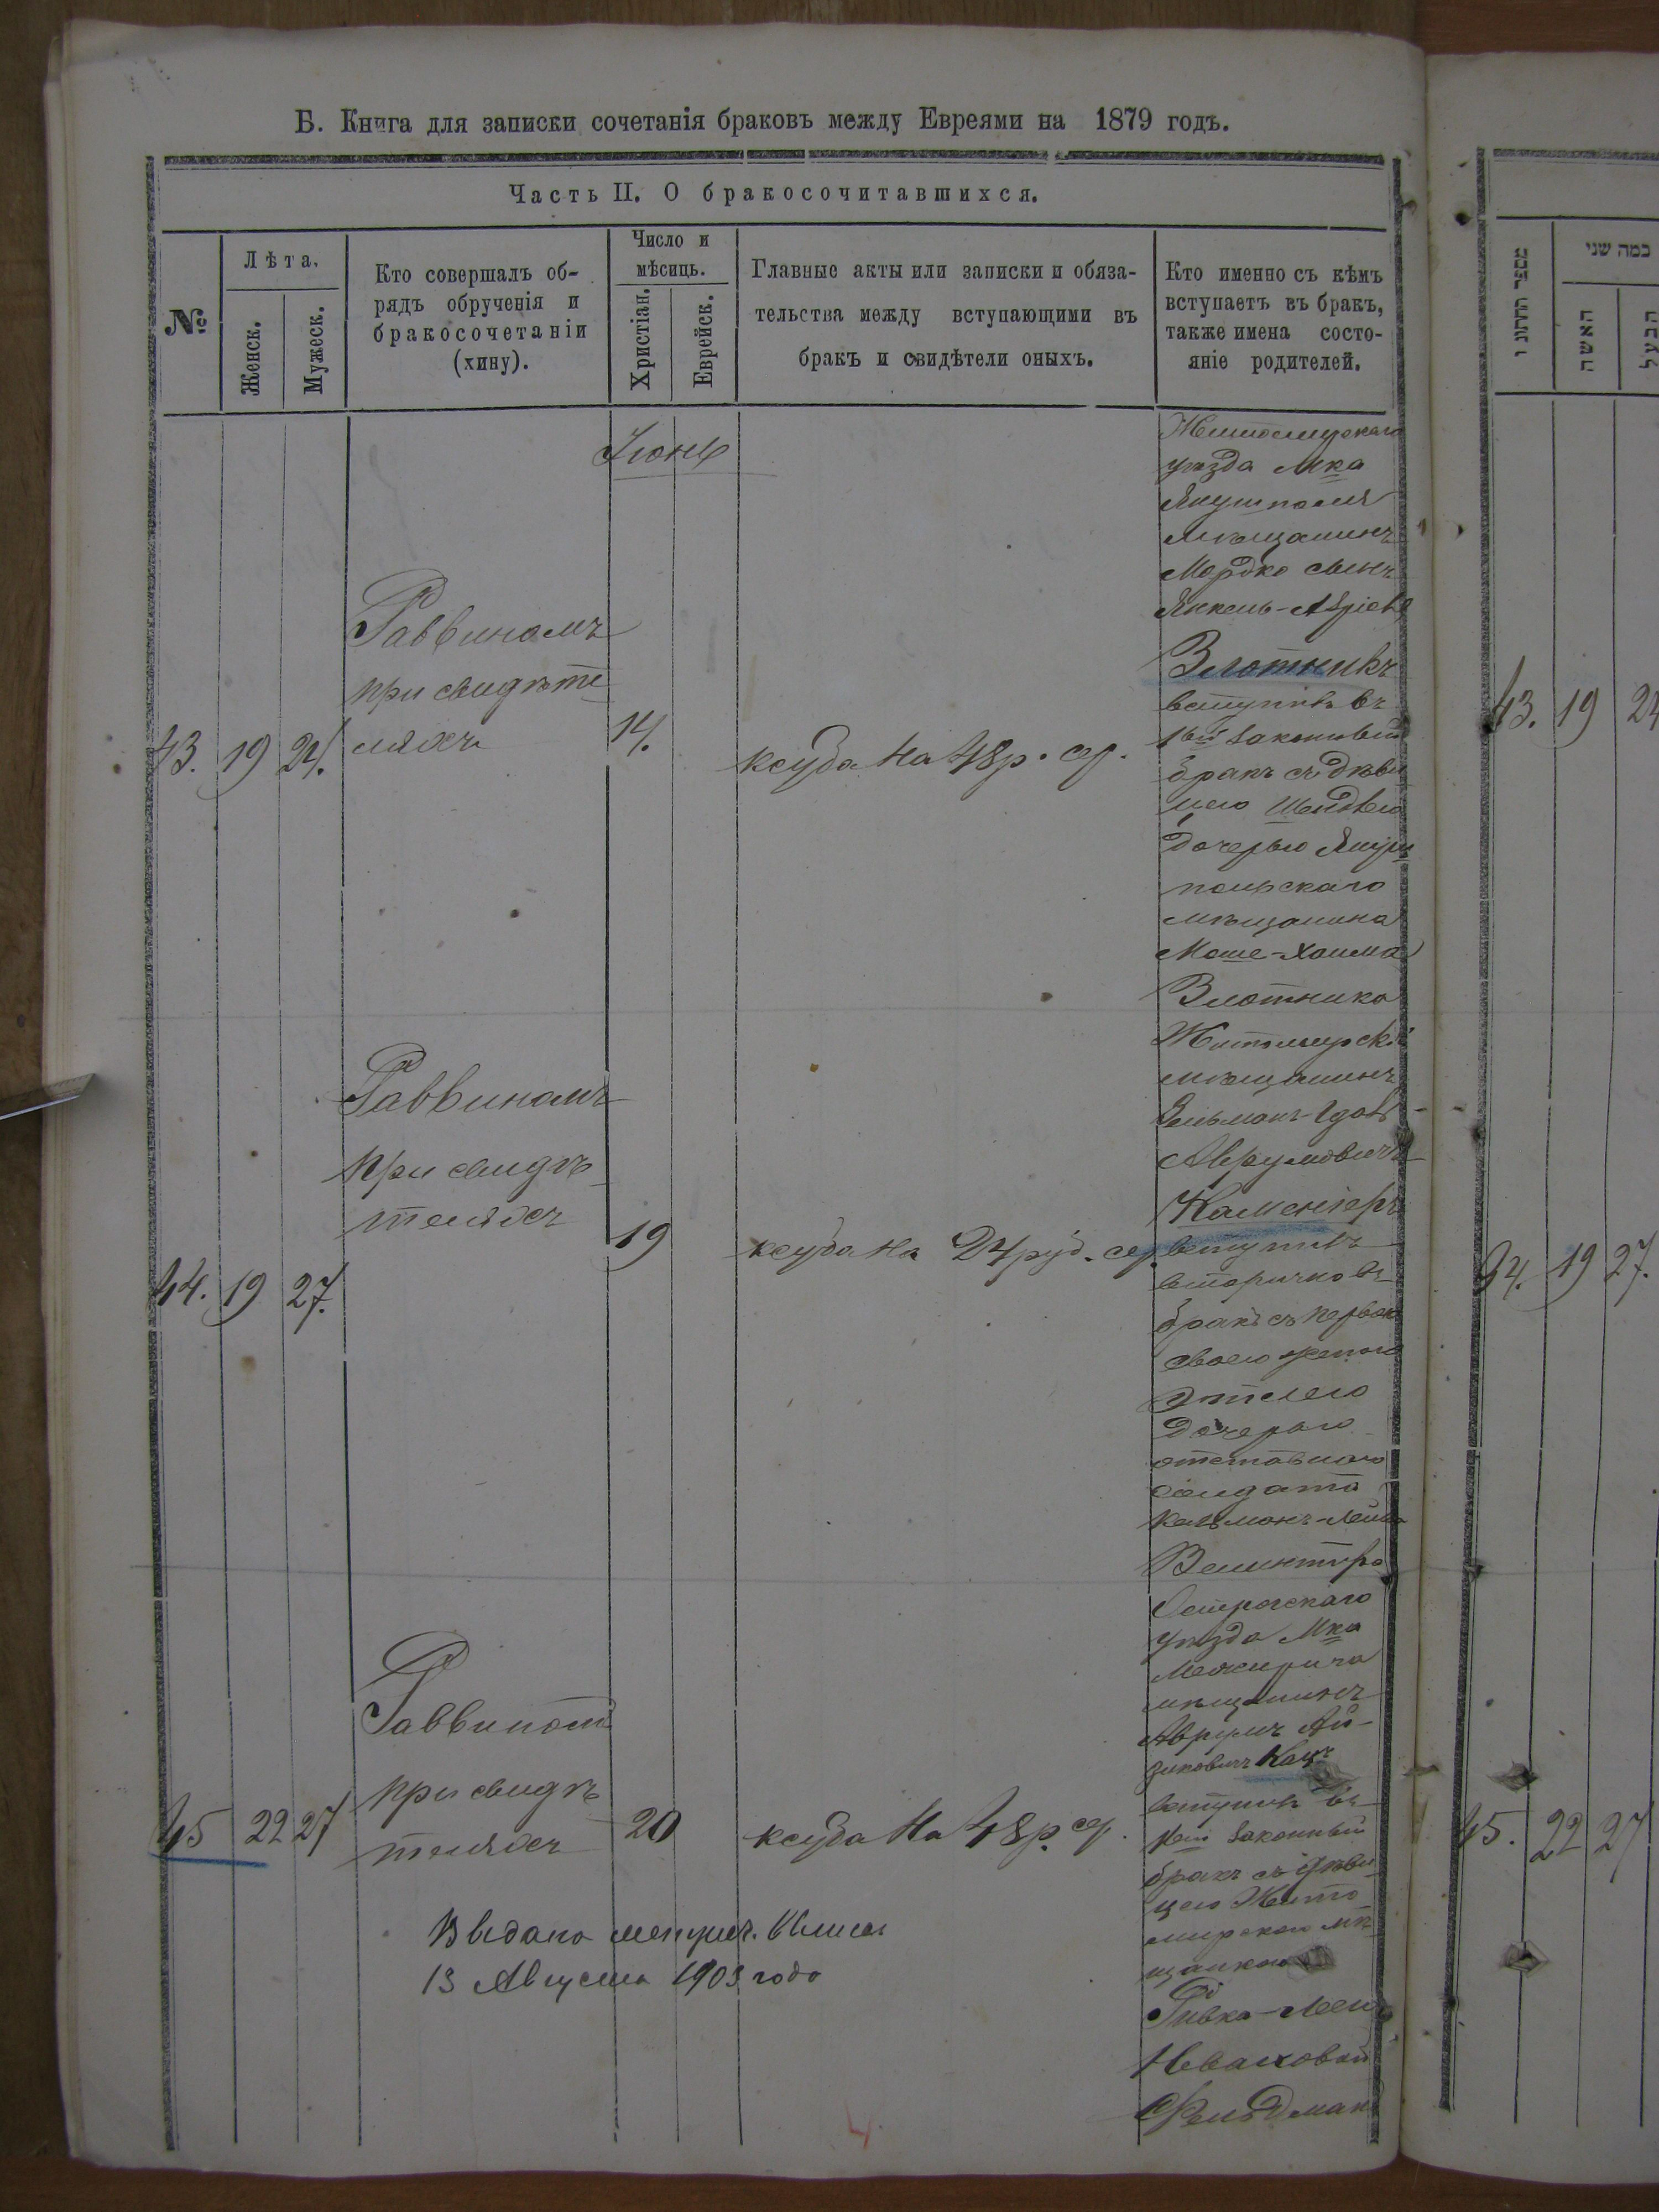 Б. Книга для записки сочетанія браковъ между Евреями на 1879 годъ.
Часть II. О бракосочитавшихся.
№
Лѣта.
Женск.
Мужеск.
Кто совершалъ об-
рядъ обрученія и
бракосочетаніи
(хину).
Число и
мѣсяць.
Христіан.
Еврейск.
Главные акты или записки и обяза-
тельства между вступающими въ
бракъ и свидѣтели оныхъ.
Кто именно съ кѣмъ
вступаетъ въ бракъ,
также имена состо-
яніе родителей.
Іюнь
43. 19 24.
Раввиномъ
при свидѣте
ляхъ
14.
ксуба на 48 р. сер.
Житомирскаго
уѣзда Мка
Янушполя
мѣщанинъ
Мордко сынъ
Янкель-
Злотникъ
вступилъ въ
1вый законный
бракъ съ дѣви
цею Шейндлею
дочерью Януш
польскаго
мѣщанина
Моше-Хаима
Злотника
44. 19 27.
Раввиномъ
при свидѣ
теляхъ
19
ксуба на 24 руб. сер.
Житомирскій
мѣщанинъ
Зельманъ-
Аврумовичъ
вступилъ
вторично въ
бракъ съ первою
своею женою
Этлею
дочерью
отставного
солдата
Кальманъ-Лейба
45 22 27
Раввиномъ
при свидѣ
теляхъ
20
ксуба на 48 р. сер.
Острогскаго
уѣзда Мка
Межирича
мѣщанинъ
Аврумъ Ай-
зиковичъ Кацъ
вступилъ въ
1вый законный
бракъ съ дѣви
цею Жито
мирской мѣ
щанкою
Ривка-Леи
Фельдман
Выдана метрич. выпись
13 Августа 1903 года
מספר החתוני
כמה שני
האשה
הבעל
43. 19 24
44. 19 27.
45. 22 27